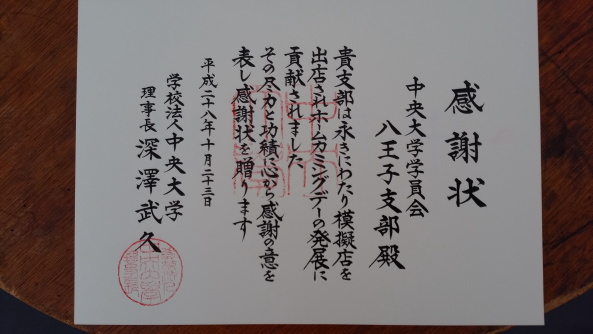 感謝状
中央大学学員会
八王子支部殿
貴支部は永きにわたり模擬店を
出店されホームカミングデーの発展に
貢献されました
その尽力と功績に心から感謝の意を
表し感謝状を贈ります
平成二十八年十月二十三日
学校法人中央大学
理事長 深澤武久